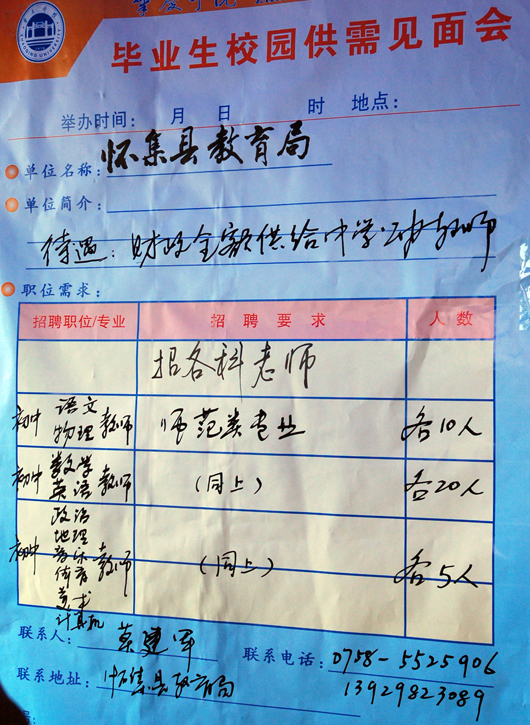 肇庆学院
毕业生校园供需见面会
举办时间: 月 日 时 地点:
单位名称: 怀集县教育局
单位简介:
待遇: 财政全额供给中学
职位需求:
招聘职位/专业 招聘要求 人数
招各科老师
初中 语文 物理 教师 师范类专业 各10人
初中 数学 英语 教师 (同上) 各20人
初中 政治 地理 音乐 体育 美术 计算机 教师 (同上) 各5人
联系人: 莫建军 联系电话: 0758-5525906
联系地址: 怀集县教育局 13929823089